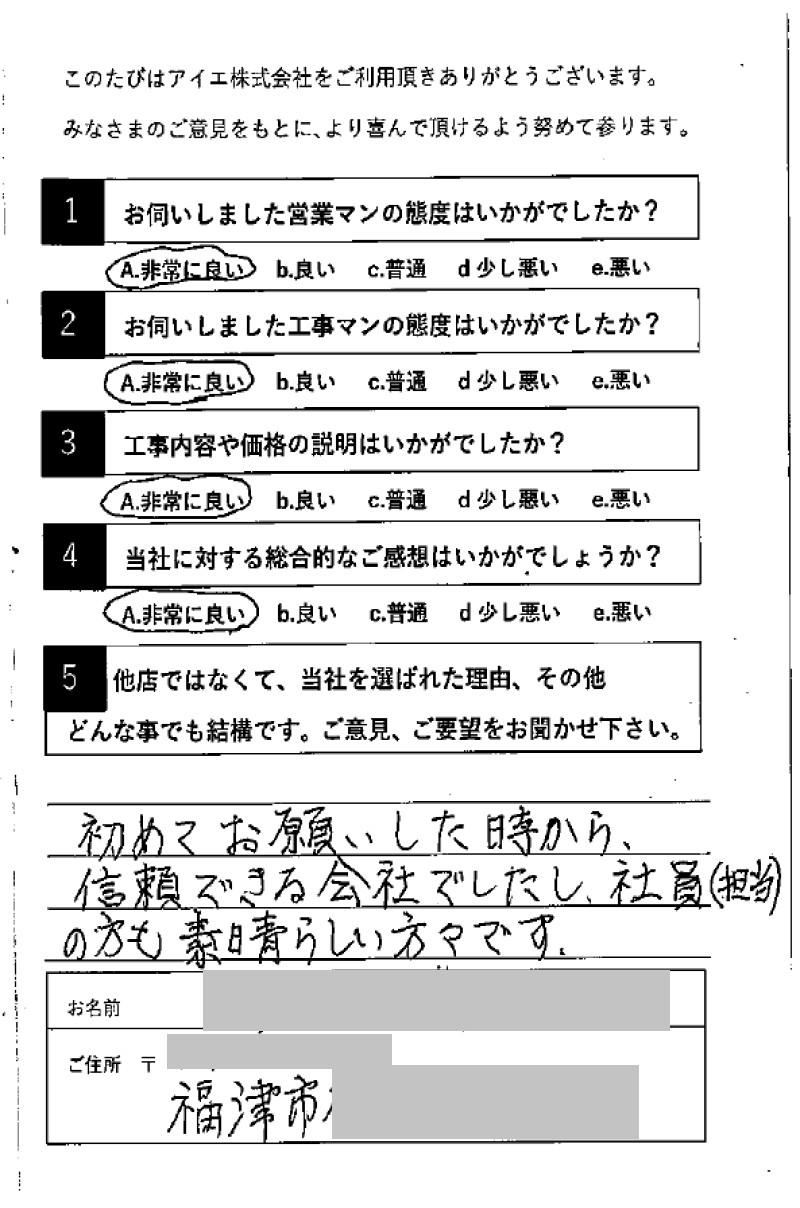 このたびはアイエ株式会社をご利用頂きありがとうございます。
みなさまのご意見をもとに、より喜んで頂けるよう努めて参ります。
1 お伺いしました営業マンの態度はいかがでしたか？
A.非常に良い b.良い c.普通 d 少し悪い e.悪い
2 お伺いしました工事マンの態度はいかがでしたか？
A.非常に良い b.良い c.普通 d 少し悪い e.悪い
3 工事内容や価格の説明はいかがでしたか？
A.非常に良い b.良い c.普通 d 少し悪い e.悪い
4 当社に対する総合的なご感想はいかがでしょうか？
A.非常に良い b.良い c.普通 d 少し悪い e.悪い
5 他店ではなくて、当社を選ばれた理由、その他
どんな事でも結構です。ご意見、ご要望をお聞かせ下さい。
初めてお願いした時から、
信頼できる会社でしたし、社員(担当)
の方も素晴らしい方々です。
お名前
ご住所 〒
福津市